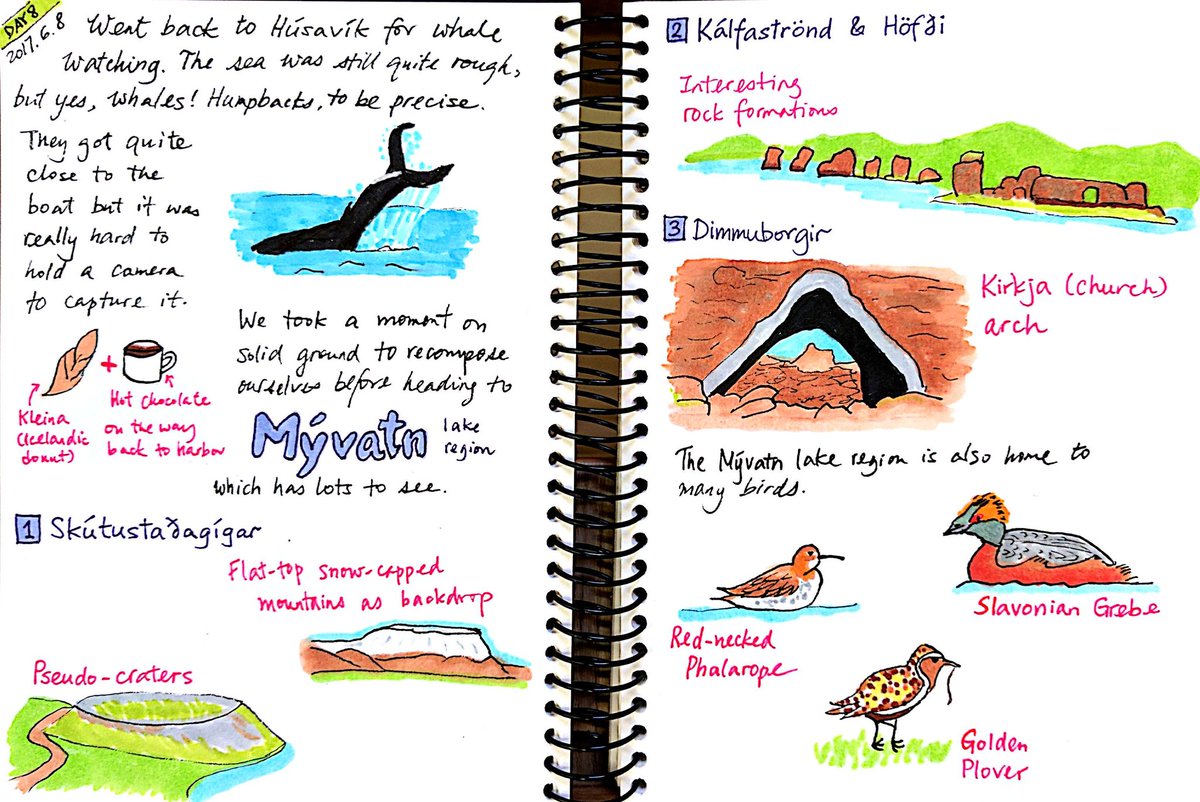 DAY 8
2017.6.8
Went back to Húsavík for whale
watching. The sea was still quite rough,
but yes, whales! Humpbacks, to be precise.
They got quite
close to the
boat but it was
really hard to
hold a camera
to capture it.
Kleina
(Icelandic
donut)
+
Hot chocolate
on the way
back to harbor
We took a moment on
solid ground to recompose
ourselves before heading to
Mývatn lake
region
which has lots to see.
1 Skútustaðagígar
Flat-top snow-capped
mountains as backdrop
Pseudo-craters
2 Kálfaströnd & Höfði
Interesting
rock formations
3 Dimmuborgir
Kirkja (church)
arch
The Mývatn lake region is also home to
many birds.
Red-necked
Phalarope
Slavonian Grebe
Golden
Plover